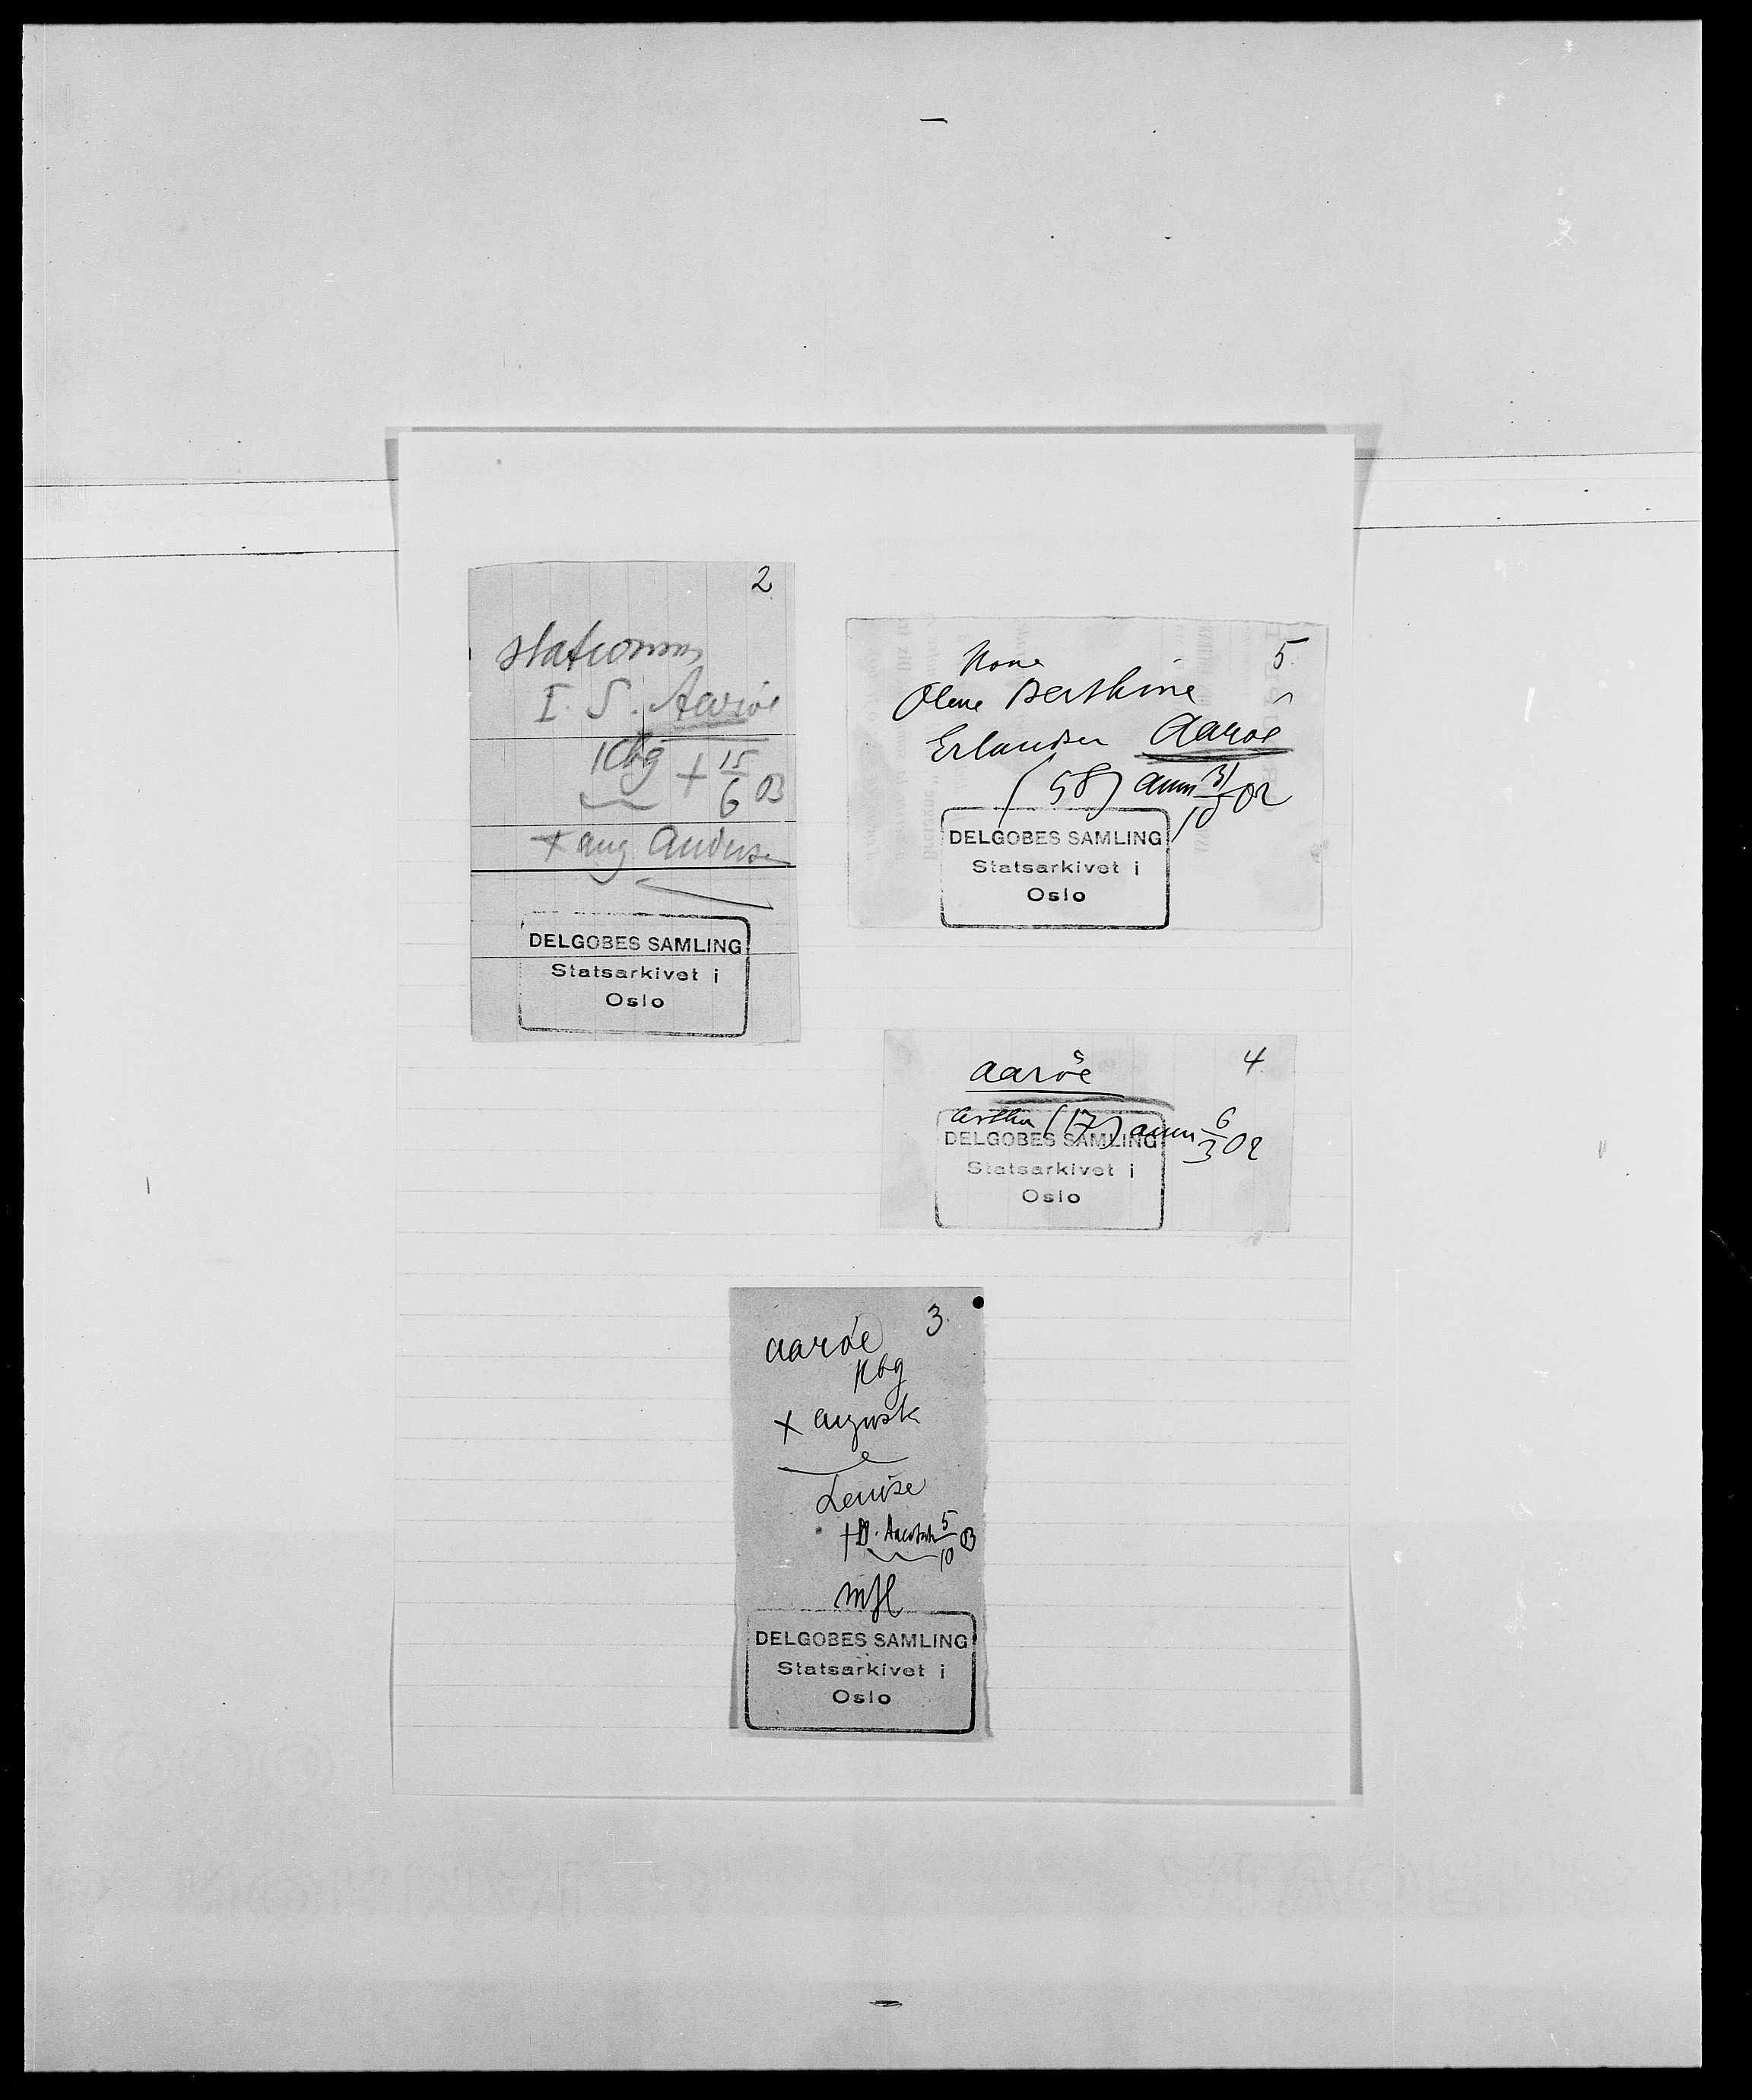 2
I. S. Aaröe
Kbg + 15/6 03
+ aug Anderse
DELGOBES SAMLING
Statsarkivet i
Oslo
5.
Kone
Olene Berthine
Erlandsen Aaröe
(58) anm 31/10 02
DELGOBES SAMLING
Statsarkivet i
Oslo
4.
Aaröe
(17) anm 6/3 02
DELGOBES SAMLING
Statsarkivet i
Oslo
3.
Aaröe
Kbg
+ August
Louise
5/10 03
DELGOBES SAMLING
Statsarkivet i
Oslo